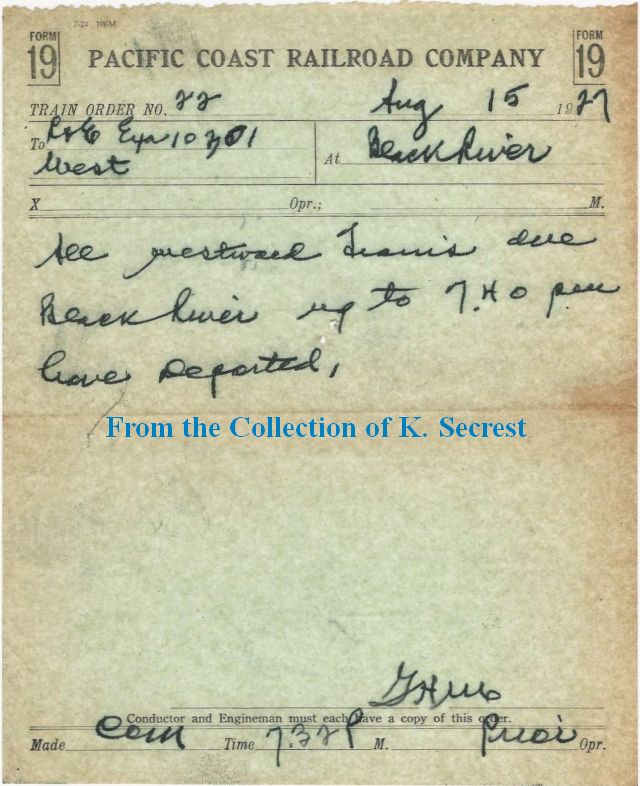 7-24 100M
FORM 19 PACIFIC COAST RAILROAD COMPANY FORM 19
TRAIN ORDER NO. 22 Aug 15 1927
To C&E Exa 10201 At Black River
West
X Opr.; M.
All westward Trains due
Black River up to 7.40 pm
have Departed,
From the Collection of K. Secrest
Conductor and Engineman must each have a copy of this order.
Made Com Time 7.32 P M. Opr.